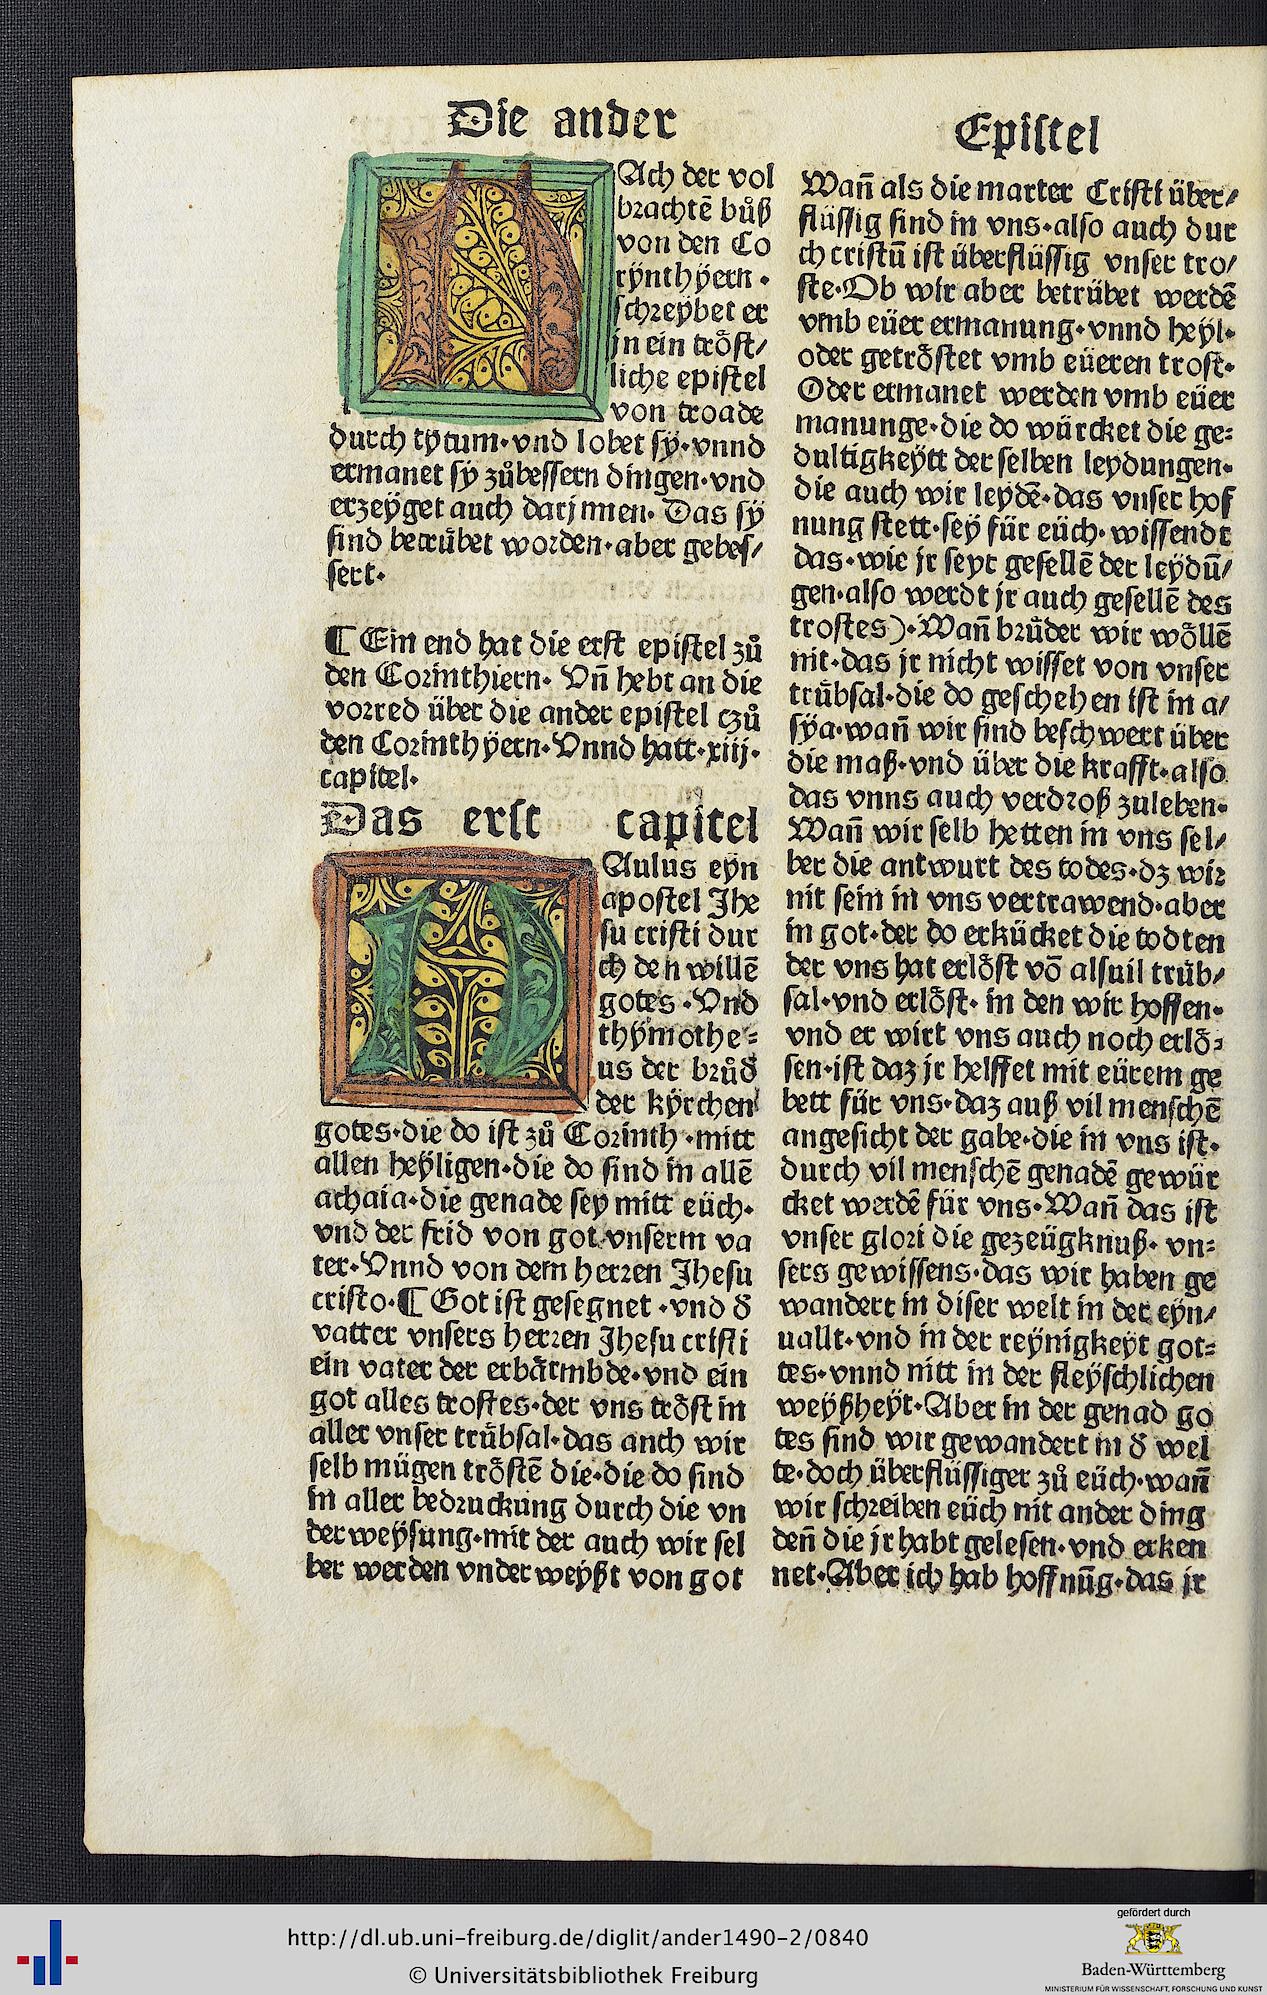 Die ander
Epistel
NAch der vol
brachtē bůß
von den Co
rÿnthÿern·
schreÿbet er
jn ein trȍst/
liche epistel
von troade
durch tÿtum·vnd lobet sÿ·vnnd
ermanet sÿ zůbessern dingen·vnd
erzeÿget auch darjnnen· Das sÿ
sind betrůbet worden·aber gebes/
sert·
¶ Ein end hat die erst epistel zů
den Corinthiern· Vn̄ hebt an die
vorred über die ander epistel czů
den Corinthÿern·Vnnd hatt·xiij·
capitel·
Das erst capitel
PAulus eÿn
apostel Jhe
su cristi dur
ch den willē
gotes·Vnd
thÿmothe⸗
us der brůd̕
der kÿrchen
gotes·die do ist zů Corinth·mitt
allen heÿligen·die do sind in allē
achaia·die genade seÿ mitt eüch·
vnd der frid von got·vnserm va
ter·Vnnd von dem herren Jhesu
cristo·¶ Got ist gesegnet·vnd d̕
vatter vnsers herren Jhesu cristi
ein vater der erbärmbde·vnd ein
got alles trostes·der vns trȍst in
aller vnser trůbsal·das anch wir
selb mügen trȍstē die·die do sind
in aller bedruckung durch die vn
derweÿsung·mit der auch wir sel
ber werden vnderweÿßt von got
Wan̄ als die marter Cristi über/
flüssig sind in vns·also auch dur
ch cristū ist überflüssig vnser tro/
ste·Ob wir aber betrůbet werdē
vmb eüer ermanung·vnnd heÿl·
oder getrȍstet vmb eüeren trost·
Oder ermanet werden vmb eüer
manunge·die do würcket die ge⸗
dultigkeÿtt der selben leydungen·
die auch wir leydē·das vnser hof
nung stett·seÿ für eüch·wissendt
das·wie jr seyt gesellē der leÿdū/
gen·also werdt jr auch gesellē des
trostes)·Wan̄ brůder wir wȍllē
nit·das jr nicht wisset von vnser
trůbsal·die do geschehen ist in a/
sÿa·wan̄ wir sind beschwert über
die maß·vnd über die krafft·also
das vnns auch verdroß zuleben·
Wan̄ wir selb hetten in vns sel/
ber die antwurt des todes·dz wir
nit sein in vns vertrawend·aber
in got·der do erkücket die todten
der vns hat erlȍst vō alsuil trůb/
sal·vnd erlȍst· in den wir hoffen·
vnd er wirt vns auch noch erlȍ⸗
sen·ist daz jr helffet mit eürem ge
bett für vns·daz auß vil menschē
angesicht der gabe·die in vns ist·
durch vil menschē genadē gewür
cket werdē für vns·Wan̄ das ist
vnser glori die gezeügknuß· vn⸗
sers gewissens·das wir haben ge
wandert in diser welt in der eÿn/
uallt·vnd in der reÿnigkeyt got⸗
tes·vnnd nitt in der fleÿschlichen
weÿßheÿt·Aber in der genad go
tes sind wir gewandert in d̕ wel
te·doch überflüssiger zů eüch·wan̄
wir schreiben eüch nit ander ding
den̄ die jr habt gelesen·vnd erken
net·Aber ich hab hoffnūg·das jr
http://dl.ub.uni-freiburg.de/diglit/ander1490-2/0840
© Universitätsbibliothek Freiburg
gefördert durch
Baden-Württemberg
MINISTERIUM FÜR WISSENSCHAFT, FORSCHUNG UND KUNST